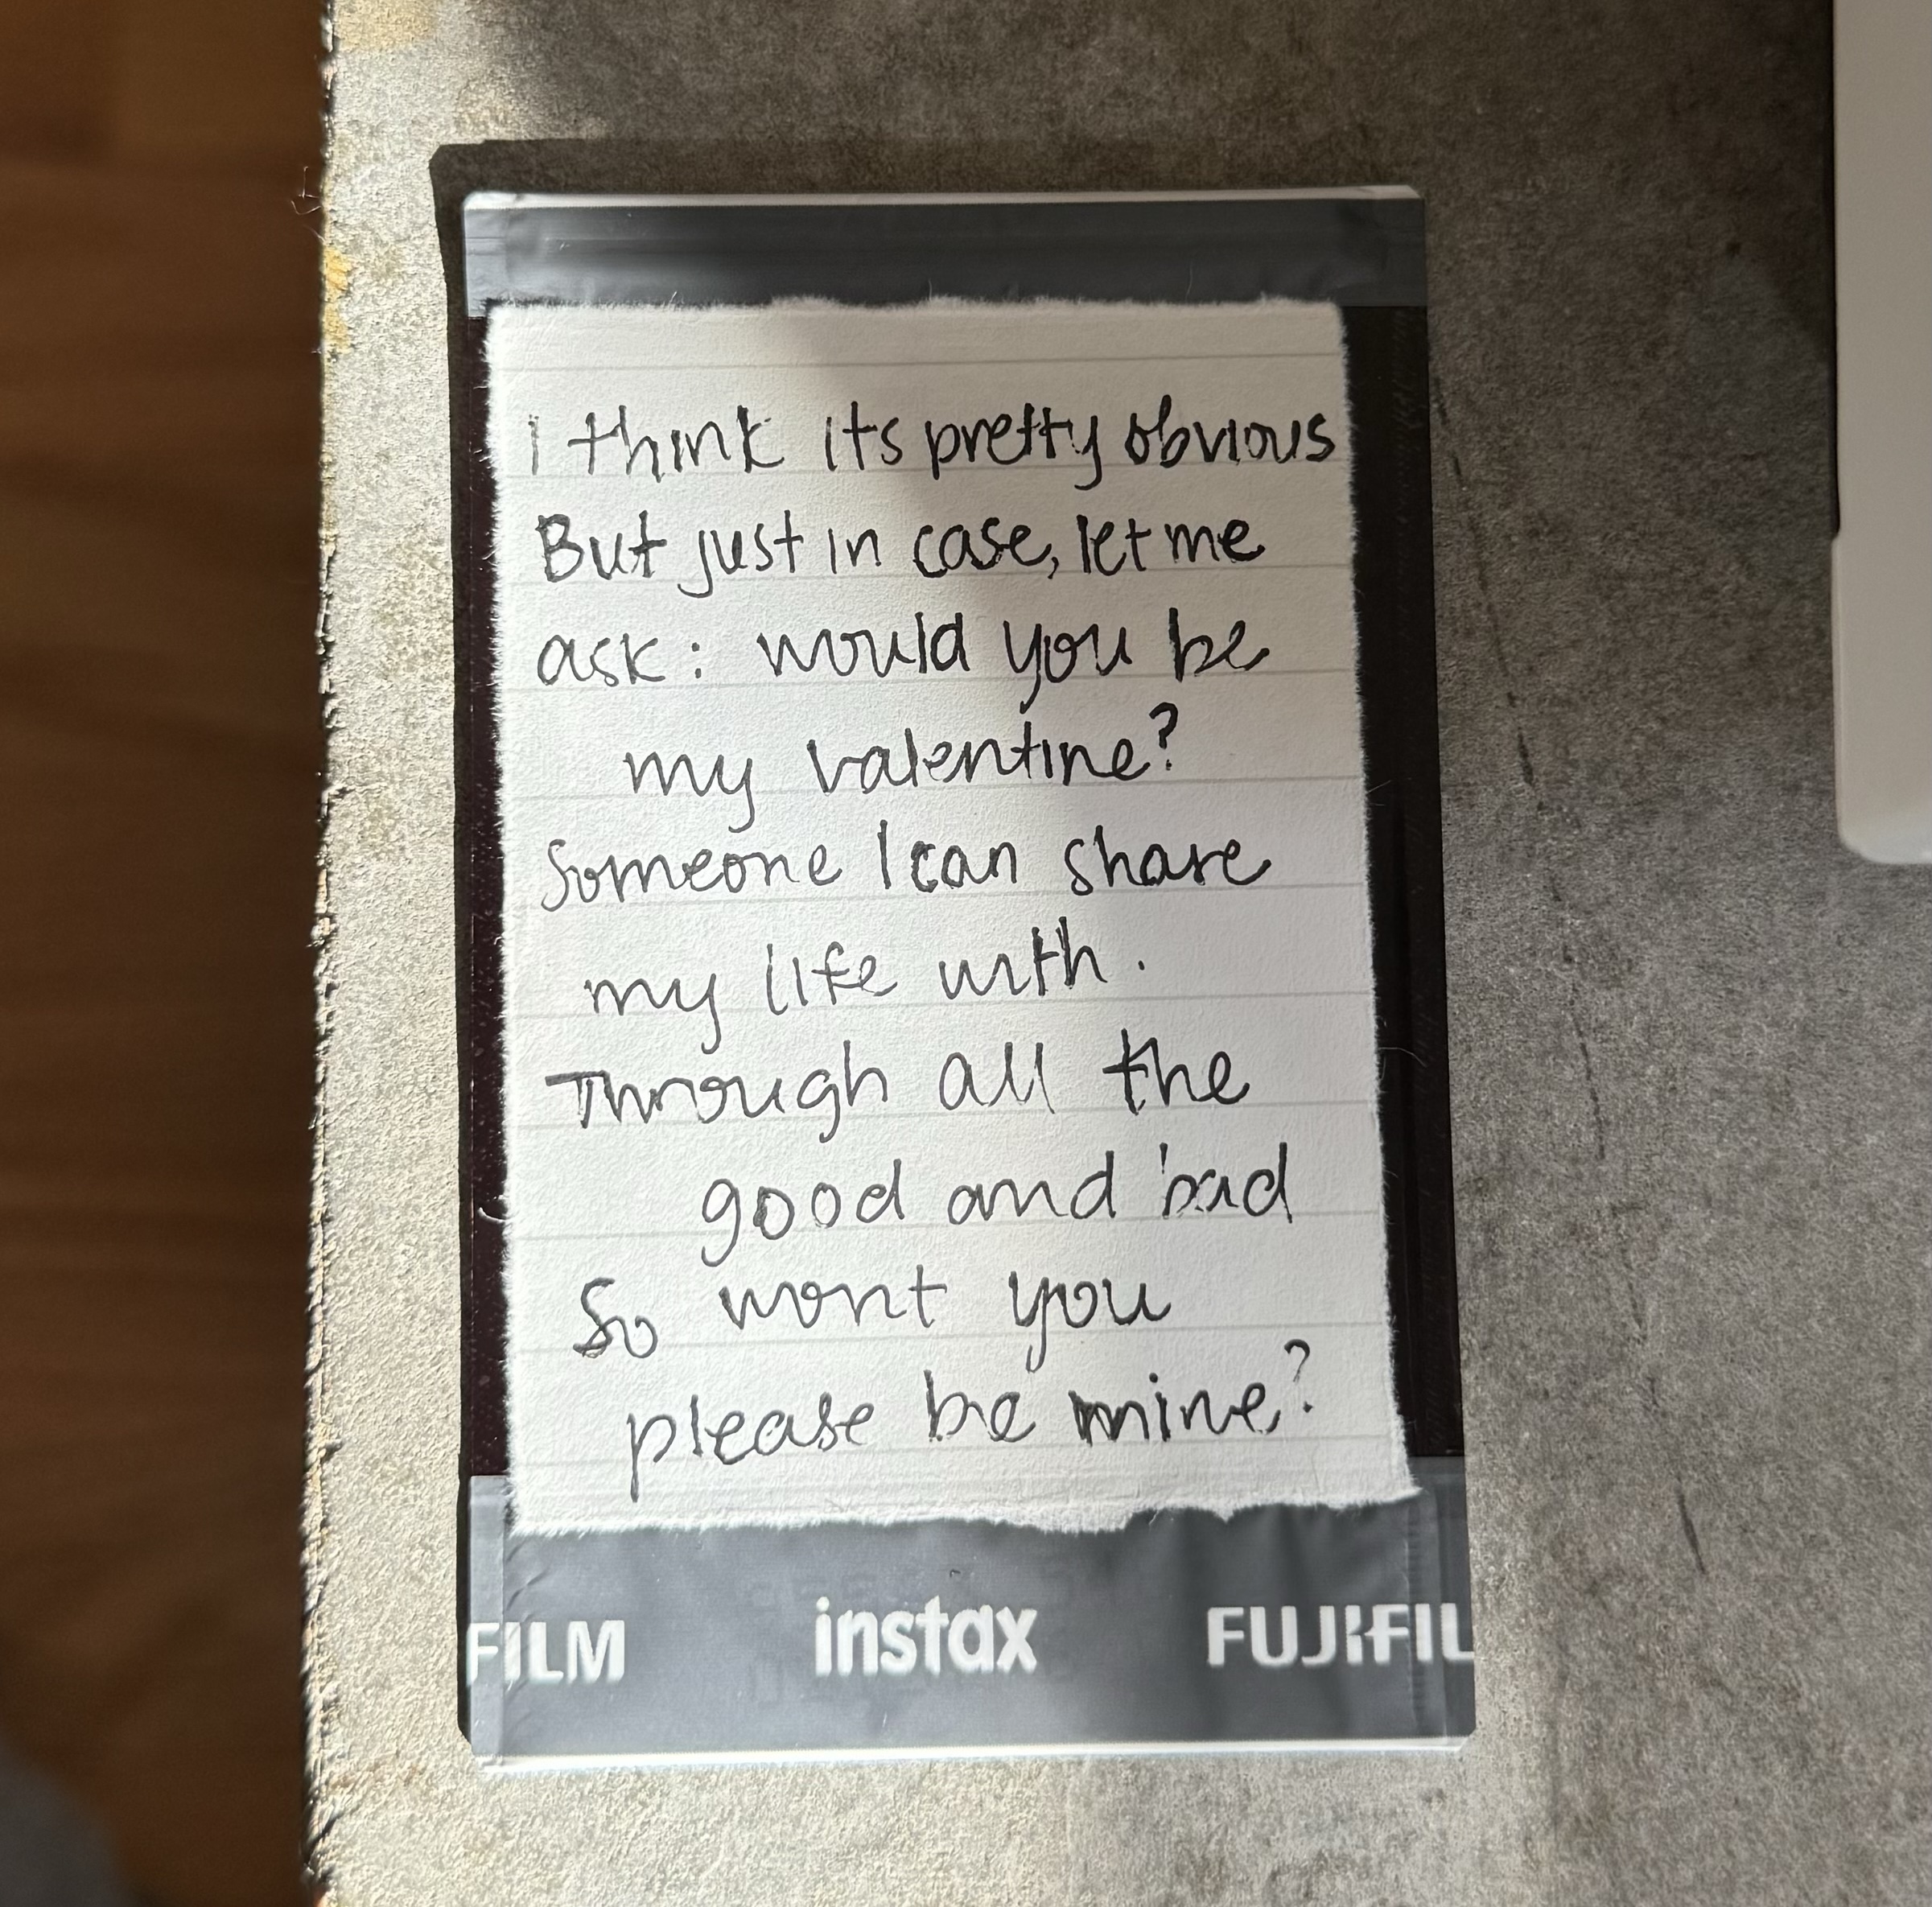 I think its pretty obvious
But just in case, let me
ask: would you be
my valentine?
Someone I can share
my life with.
Through all the
good and bad
So wont you
please be mine?
FILM instax FUJIFIL